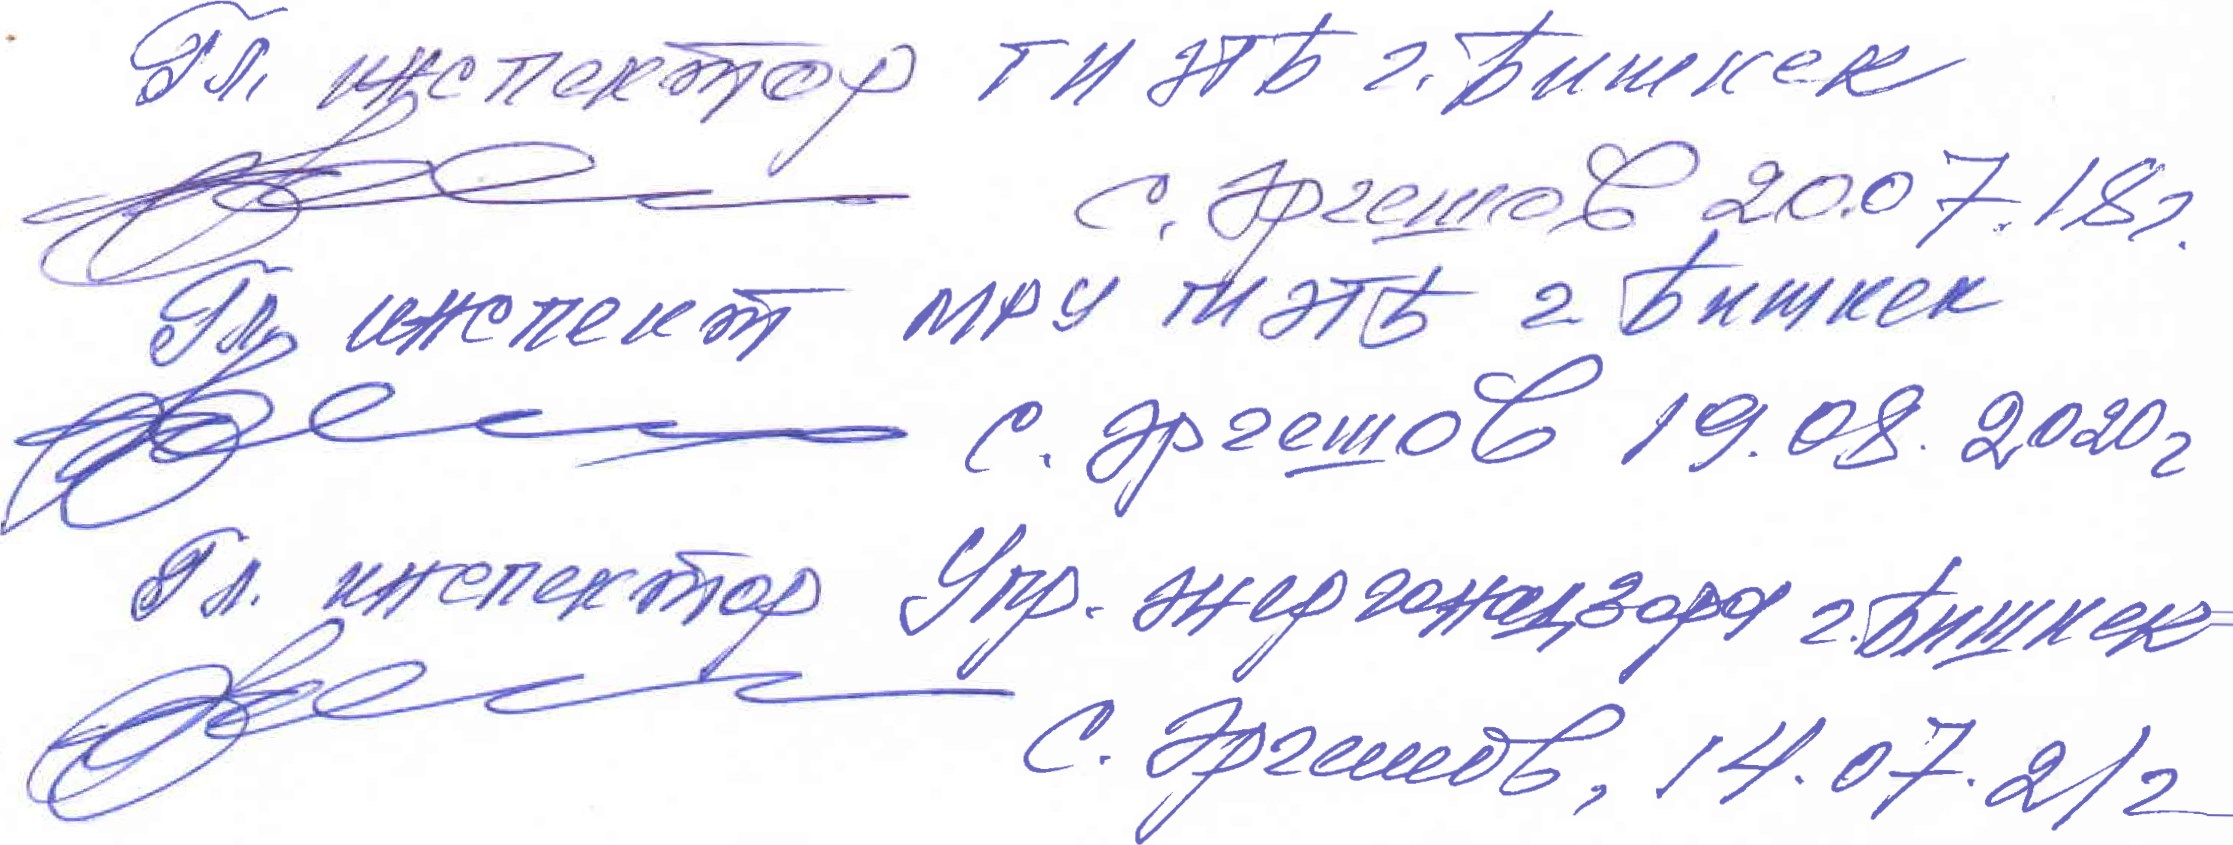 Гл. инспектор ГИЭТБ г. Бишкек
С. Эргешов 20.07.18г.
Гл. инспект МРУ ГИЭТБ г Бишкек
С. Эргешов 19.08.2020г
Гл. инспектор Упр. энергонадзора г. Бишкек
С. Эргешов, 14.07.21г